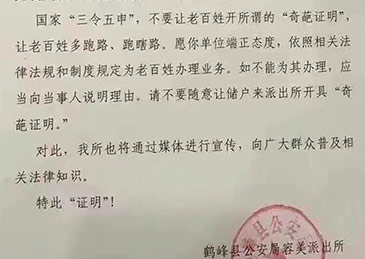 国家“三令五申”，不要让老百姓开所谓的“奇葩证明”，
让老百姓多跑路、跑瞎路。愿你单位端正态度，依照相关法
律法规和制度规定为老百姓办理业务。如不能为其办理，应
当向当事人说明理由。请不要随意让储户来派出所开具“奇
葩证明。”
对此，我所也将通过媒体进行宣传，向广大群众普及相
关法律知识。
特此“证明”！
县公安
鹤峰县公安局容美派出所